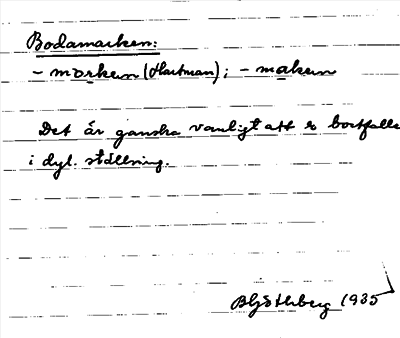 Bodamarken:
- marken (Hartman); - maken
Det är ganska vanligt att r bortfalle
i dyl. ställning.
1935